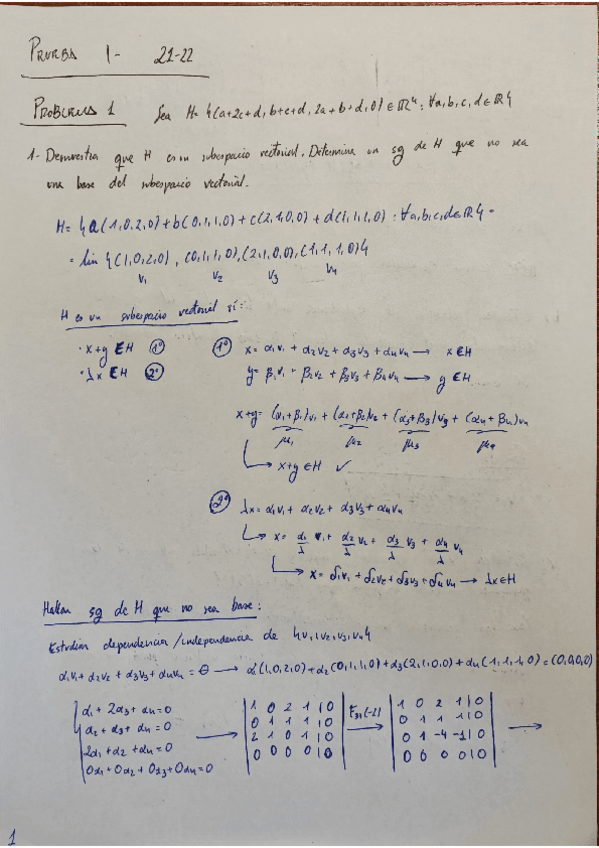 PRUEBA 1- 21-22
PROBLEMA 1 Sea H={(a+2c+d, b+c+d, 2a+b+d, 0) ∈ ℝ⁴: ∀a,b,c,d ∈ ℝ}
1- Demuestra que H es un subespacio vectorial. Determina un sg de H que no sea
una base del subespacio vectorial.
H= {a(1,0,2,0)+b(0,1,1,0)+c(2,1,0,0)+d(1,1,1,0): ∀a,b,c,d∈ℝ} =
= lin {(1,0,2,0), (0,1,1,0), (2,1,0,0), (1,1,1,0)}
v₁ v₂ v₃ v₄
H es un subespacio vectorial si:
· x+y ∈ H 1º
· λx ∈ H 2º
1º x= α₁v₁ + α₂v₂ + α₃v₃ + α₄v₄ → x ∈ H
y= β₁v₁ + β₂v₂ + β₃v₃ + β₄v₄ → y ∈ H
x+y= (α₁+β₁)v₁ + (α₂+β₂)v₂ + (α₃+β₃)v₃ + (α₄+β₄)v₄
μ₁ μ₂ μ₃ μ₄
↳ x+y ∈ H ✓
2º λx= α₁v₁ + α₂v₂ + α₃v₃ + α₄v₄
↳ x= α₁/λ v₁ + α₂/λ v₂ + α₃/λ v₃ + α₄/λ v₄
↳ x= δ₁v₁ + δ₂v₂ + δ₃v₃ + δ₄v₄ → λx ∈ H
Hallar sg de H que no sea base:
Estudiar dependencia/independencia de {v₁,v₂,v₃,v₄}
α₁v₁ + α₂v₂ + α₃v₃ + α₄v₄ = θ → α₁(1,0,2,0)+α₂(0,1,1,0)+α₃(2,1,0,0)+α₄(1,1,1,0)=(0,0,0,0)
α₁ + 2α₃ + α₄ = 0
α₂ + α₃ + α₄ = 0
2α₁ + α₂ + α₄ = 0
0α₁ + 0α₂ + 0α₃ + 0α₄ = 0
→
1 0 2 1 | 0
0 1 1 1 | 0
2 1 0 1 | 0
0 0 0 0 | 0
E₃₁(-2) →
1 0 2 1 | 0
0 1 1 1 | 0
0 1 -4 -1 | 0
0 0 0 0 | 0
→
1